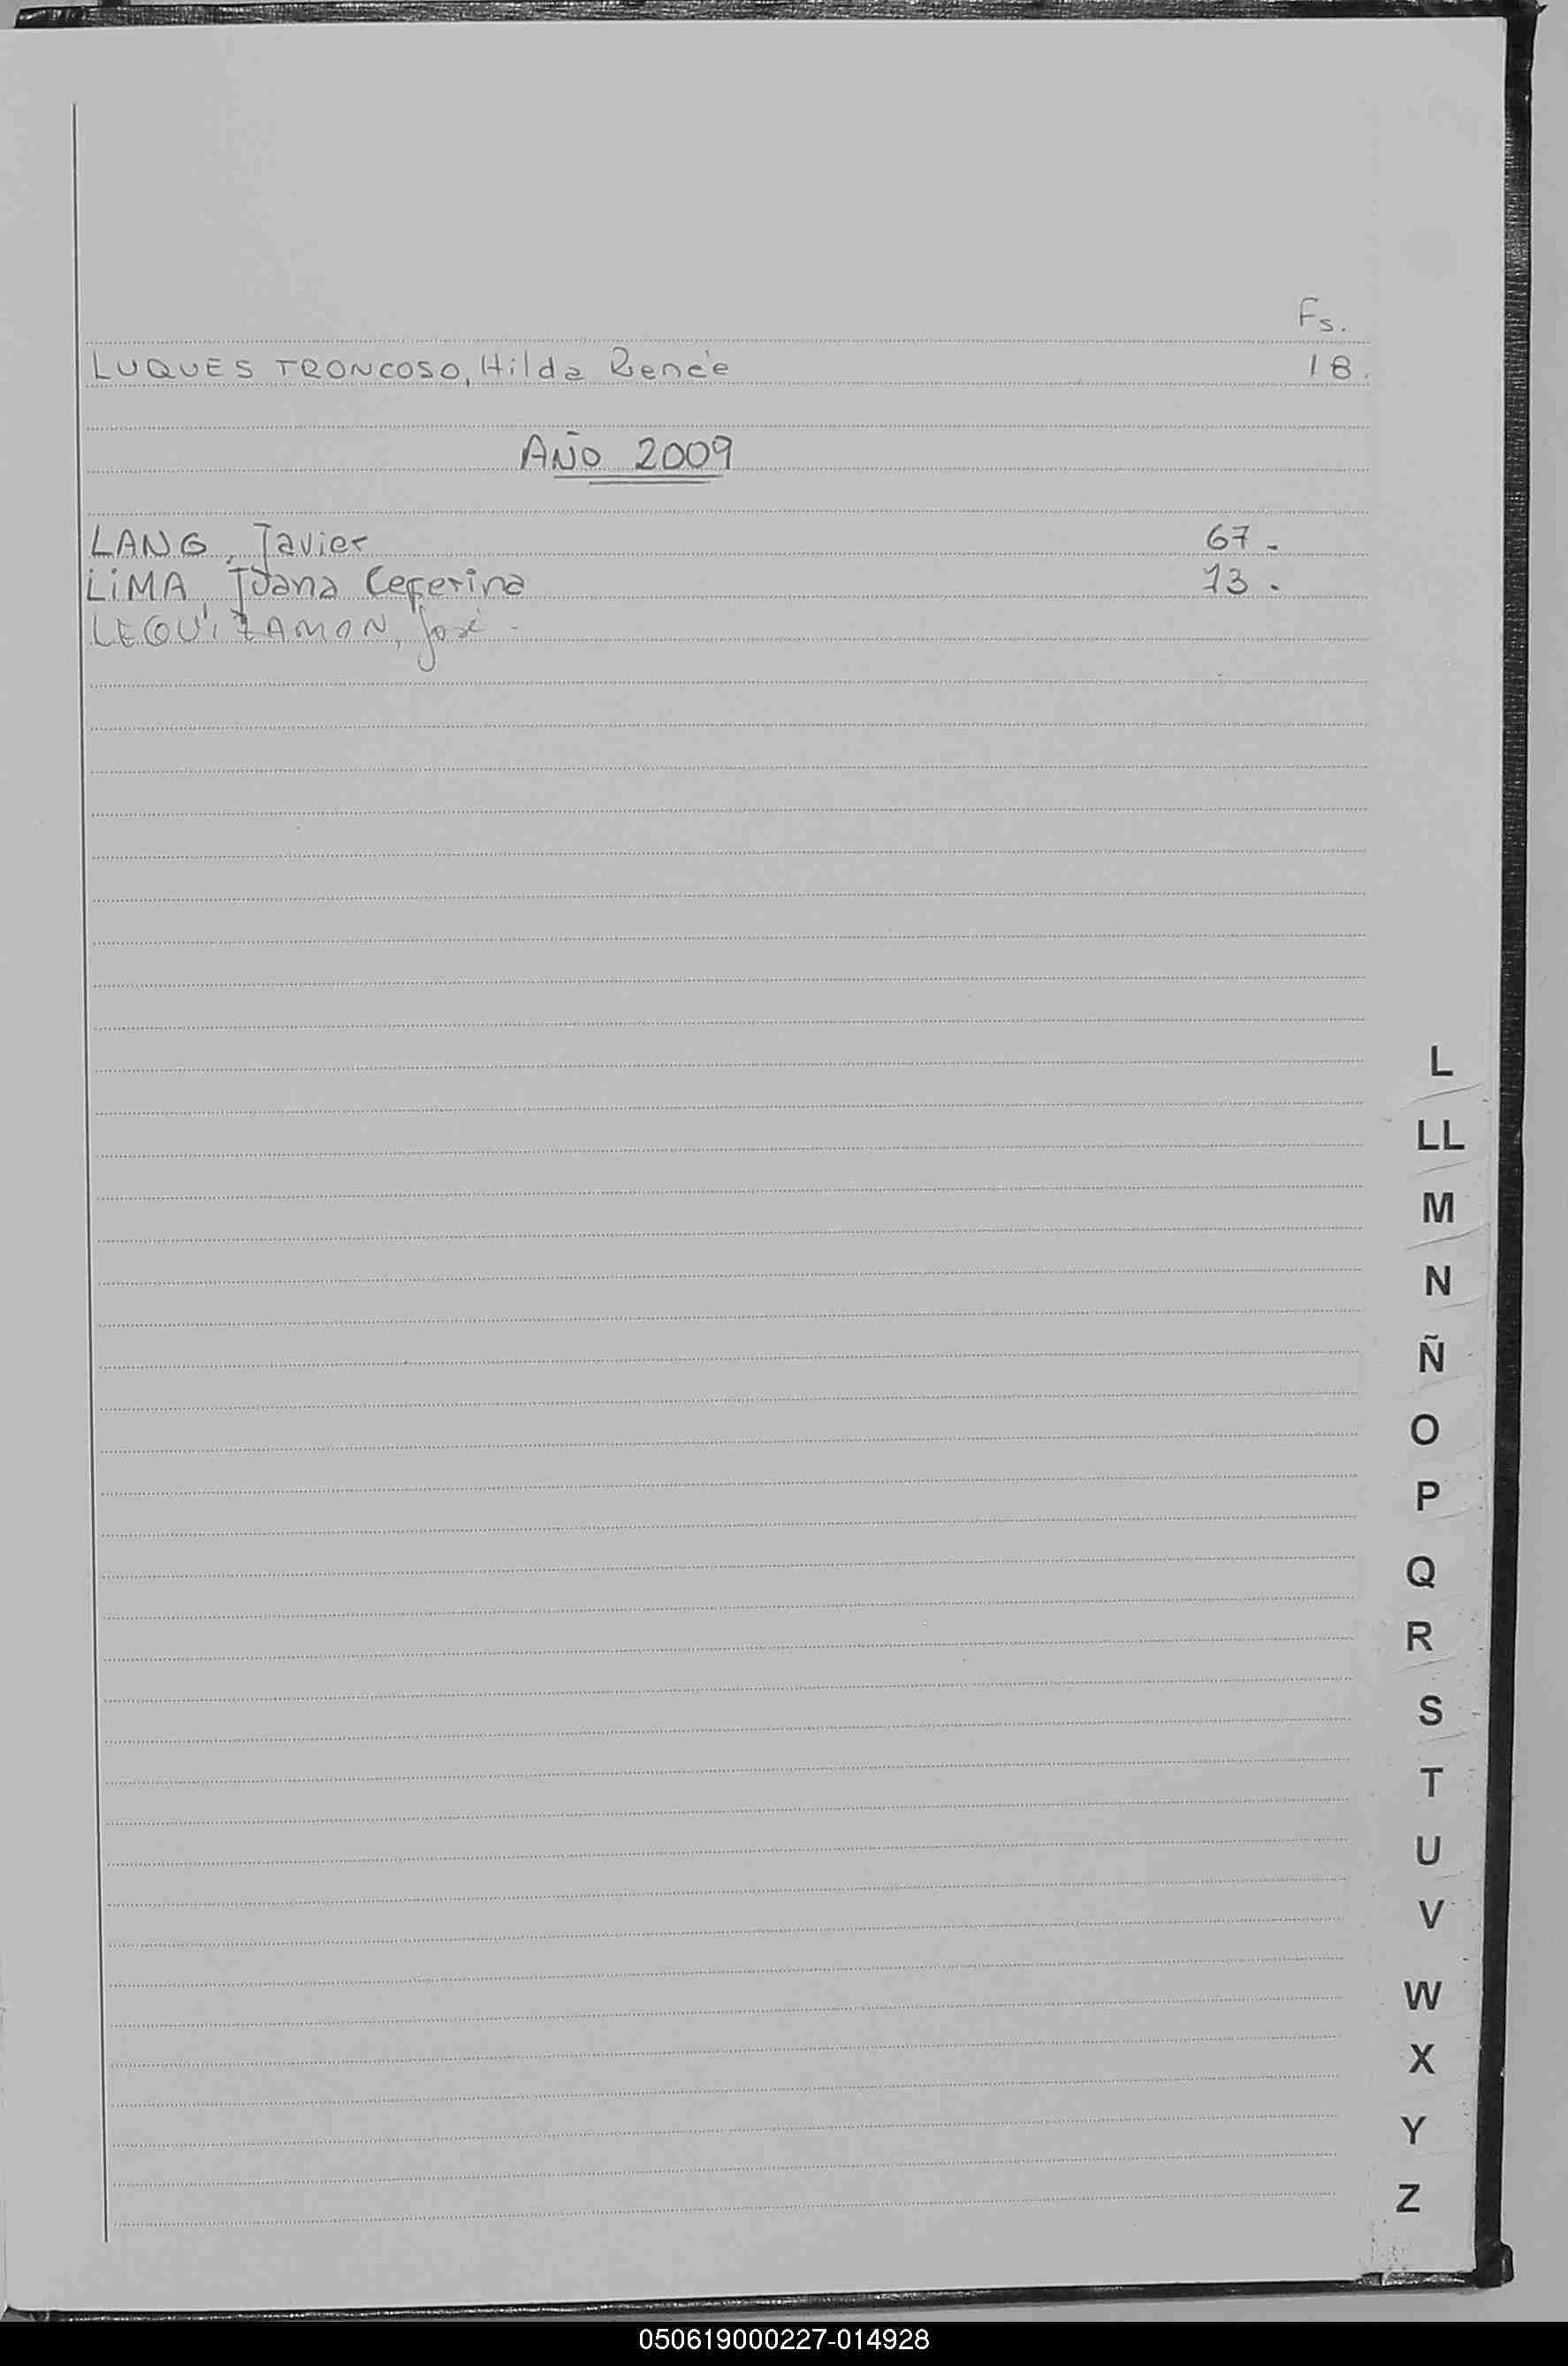 Fs.
LUQUES TRONCOSO, Hilda Renée 18.
AÑO 2009
LANG, Javier 67.-
LiMA, Juana Ceferina 73.-
LEGUIZAMON, José -
L
LL
M
N
Ñ
O
P
Q
R
S
T
U
V
W
X
Y
Z
050619000227-014928